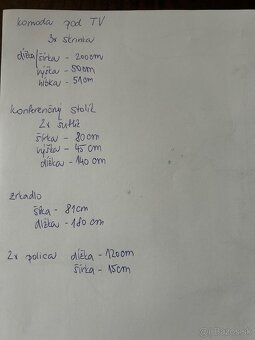 komoda pod TV
3x skrinka
dĺžka/šírka - 200cm
výška - 50cm
hĺbka - 51cm
konferenčný stolík
2x šuflík
šírka - 80cm
výška - 45cm
dĺžka - 140cm
zrkadlo
šírka - 81cm
dĺžka - 180cm
2x polica dĺžka - 120cm
šírka - 15cm